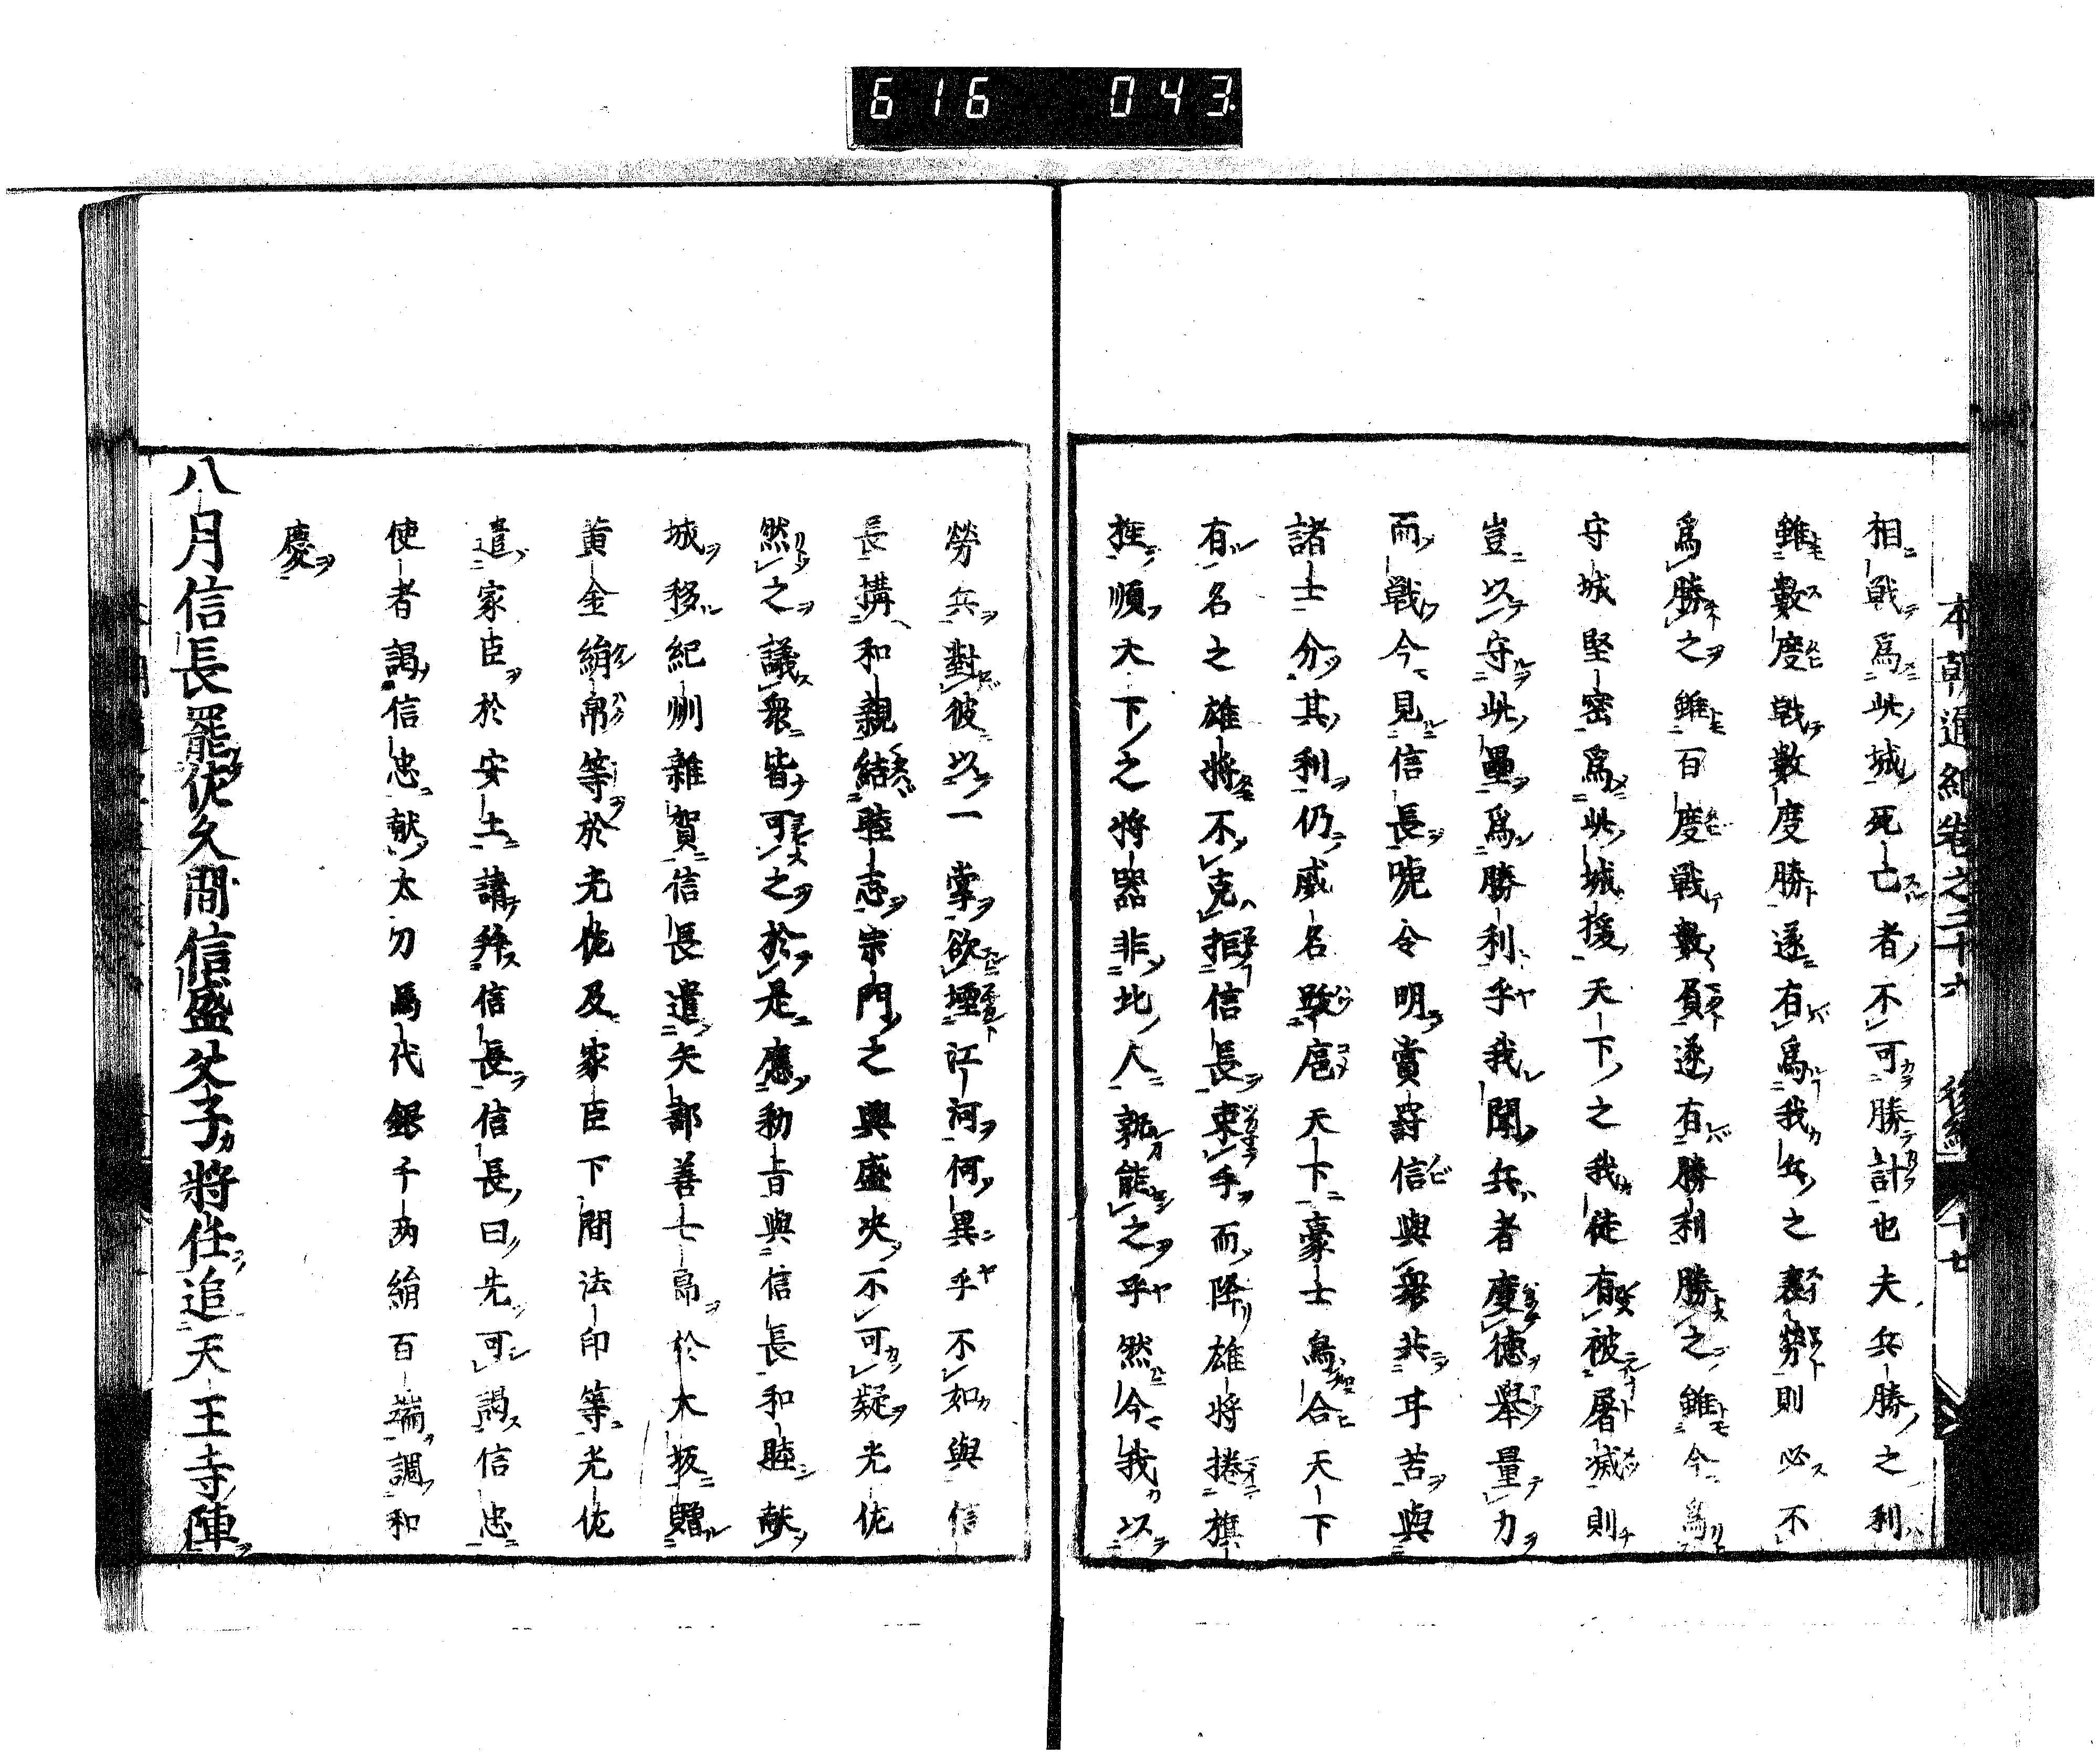 616 043
本朝通紀巻之二十六 後編 十七
相戦為此城死亡者不可勝計也夫兵勝之利
雖數度戦數度勝遂有為我兵之衰勞則必不
為勝之雖百度戦數負遂有勝利勝之雖今為
守城堅密為此城援天下之我徒有被屠滅則
豈以守此壘為勝利乎我聞兵者度德舉量力
而戦今見信長號令明賞罸信與衆共耳苦與
諸士分其利仍威名毀扈天下豪士烏合天下
有名之雄將不克拒信長束手而降雄将捲旗
抂順天下之将噐非此人孰能之乎然今我以
勞兵對彼以一掌欲堙江河何異乎不如與信
長搆和親結睦志宗門之興盛决不可疑光佐
然之議衆皆可之於是應勅旨與信長和睦献
城移紀州雜賀信長遣矢部善七郎於大坂贈
黄金絹帛等於光佐及家臣下間法印等光佐
遣家臣於安土請拜信長信長曰先可謁信忠
使者謁信忠献太刀馬代銀千兩絹百端調和
慶
八月信長罷佐久間信盛父子將仕追天王寺陣